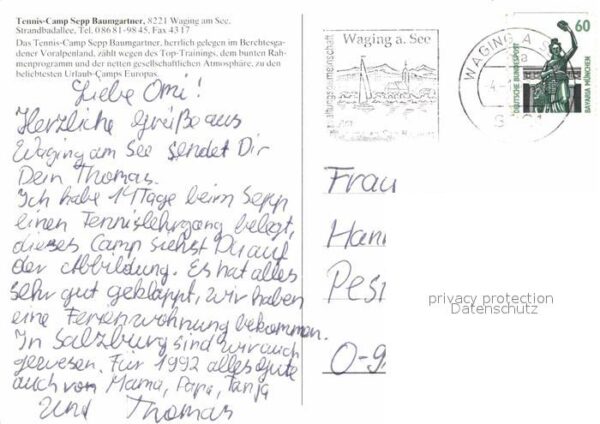 Tennis-Camp Sepp Baumgartner, 8221 Waging am See,
Strandbadallee, Tel. 0 86 81-98 45, Fax 43 17
Das Tennis-Camp Sepp Baumgartner, herrlich gelegen im Berchtesga-
dener Voralpenland, zählt wegen des Top-Trainings, dem bunten Rah-
menprogramm und der netten gesellschaftlichen Atmosphäre, zu den
beliebtesten Urlaub-Camps Europas.
Liebe Omi!
Herzliche Grüße aus
Waging am See sendet Dir
Dein Thomas.
Ich habe 14 Tage beim Sepp
einen Tennislehrgang belegt,
dieses Camp siehst Du auf
der Abbildung. Es hat alles
sehr gut geklappt, wir haben
eine Ferienwohnung bekommen.
In Salzburg sind wir auch
gewesen. Für 1992 alles Gute
auch von Mama, Papa, Tanja
und Thomas
Waging a. See
WAGING A. S
60
DEUTSCHE BUNDESPOST
BAVARIA MÜNCHEN
Frau
Han
Pes
O-9
privacy protection
Datenschutz